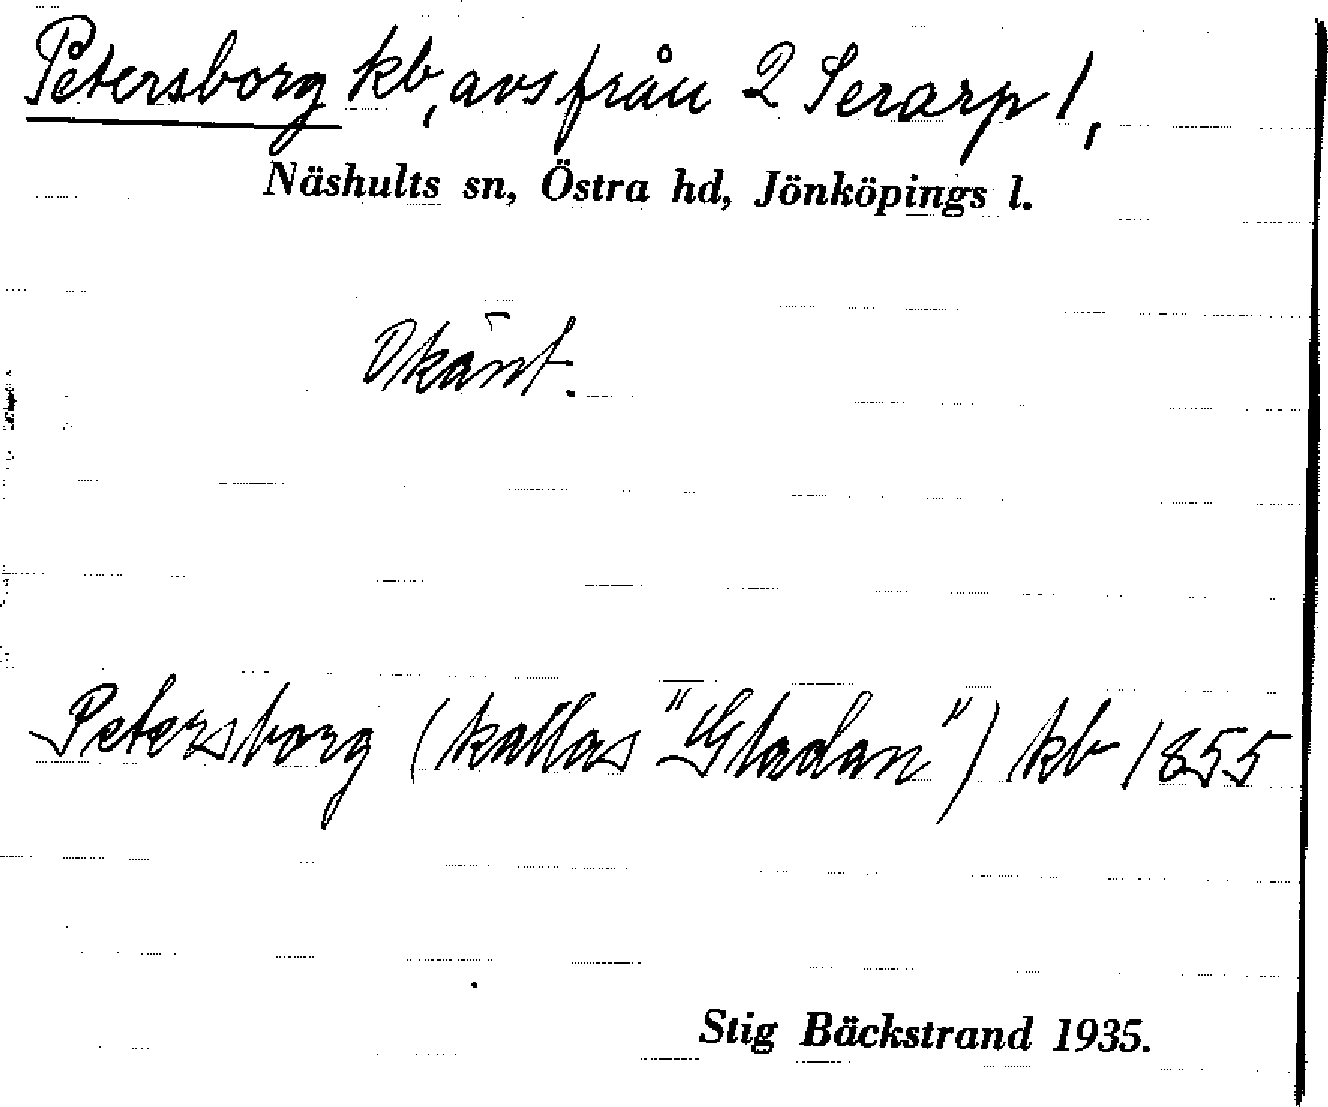 Petersborg kb, avs från 2 Serarp 1,
Näshults sn, Östra hd, Jönköpings l.
Okänt.
Petersborg (kallas "Stadan") kb 1855
Stig Bäckstrand 1935.